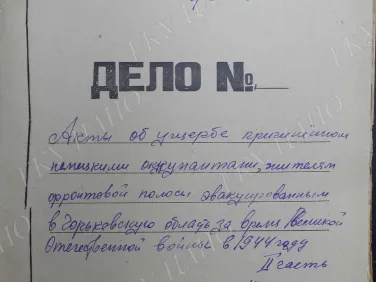 ДЕЛО №
Акты об ущербе причинённом
немецкими оккупантами, жителям
фронтовой полосы эвакуированным
в Горьковскую область за время Великой
Отечественной войны в 1944 году
II часть